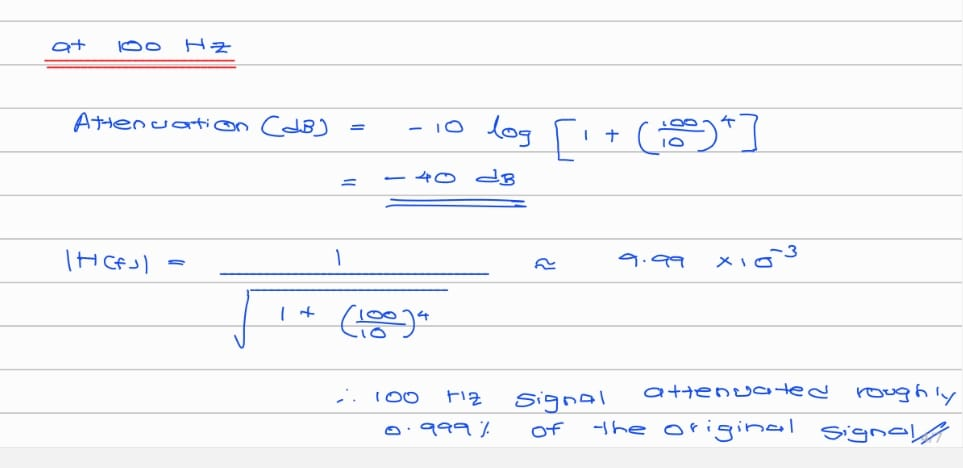 at 100 Hz
Attenuation (dB) = -10 log [1 + (100/10)^4]
= -40 dB
|H(f)| = 1/√(1 + (100/10)^4) ≈ 9.99 × 10^-3
∴ 100 Hz signal attenuated roughly
0.999% of the original signal